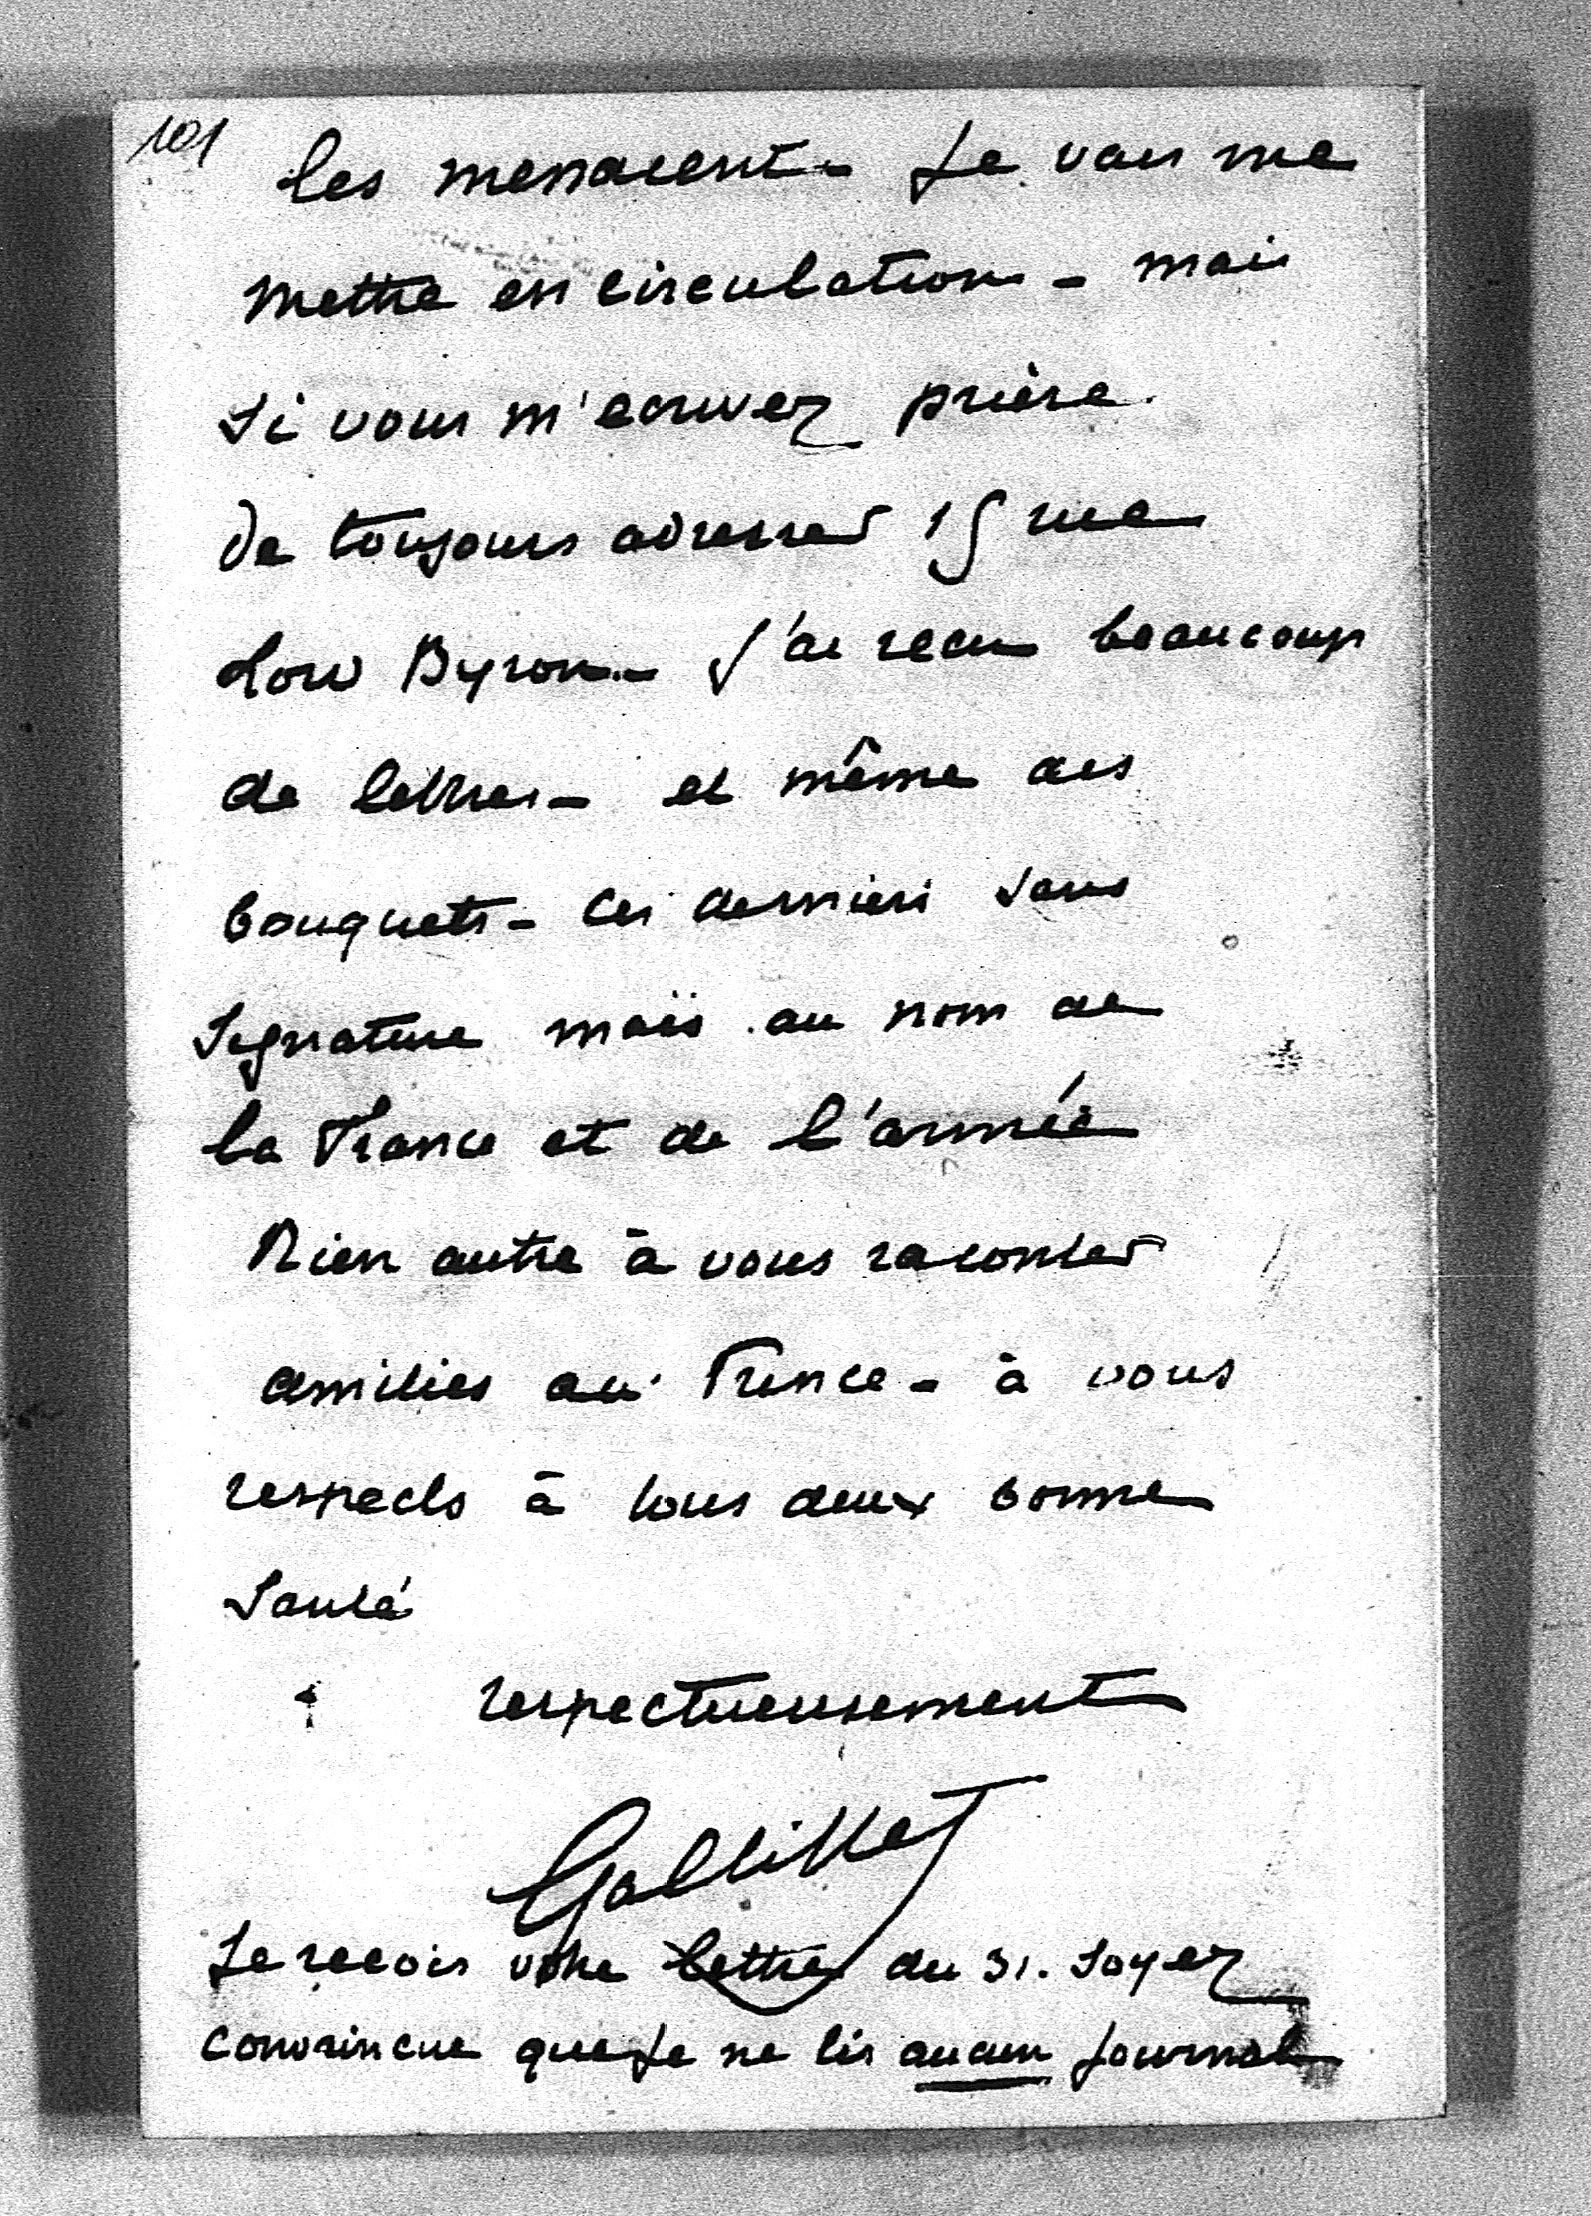 101
les menacent - Je vais me
mettre en circulation - mais
si vous m'ecrivez prière
de toujours adresser 15 rue
Lord Byron - J'ai recu beaucoup
de lettres - et même des
bouquets - Ces derniers sans
signature mais au nom de
la France et de l'armée
Rien autre à vous raconter
amitiés au Prince - à vous
respects à tous deux bonne
santé
respectueusement
Galliffet
Je recois votre lettre du 31. Soyez
convaincue que je ne lis aucun journal